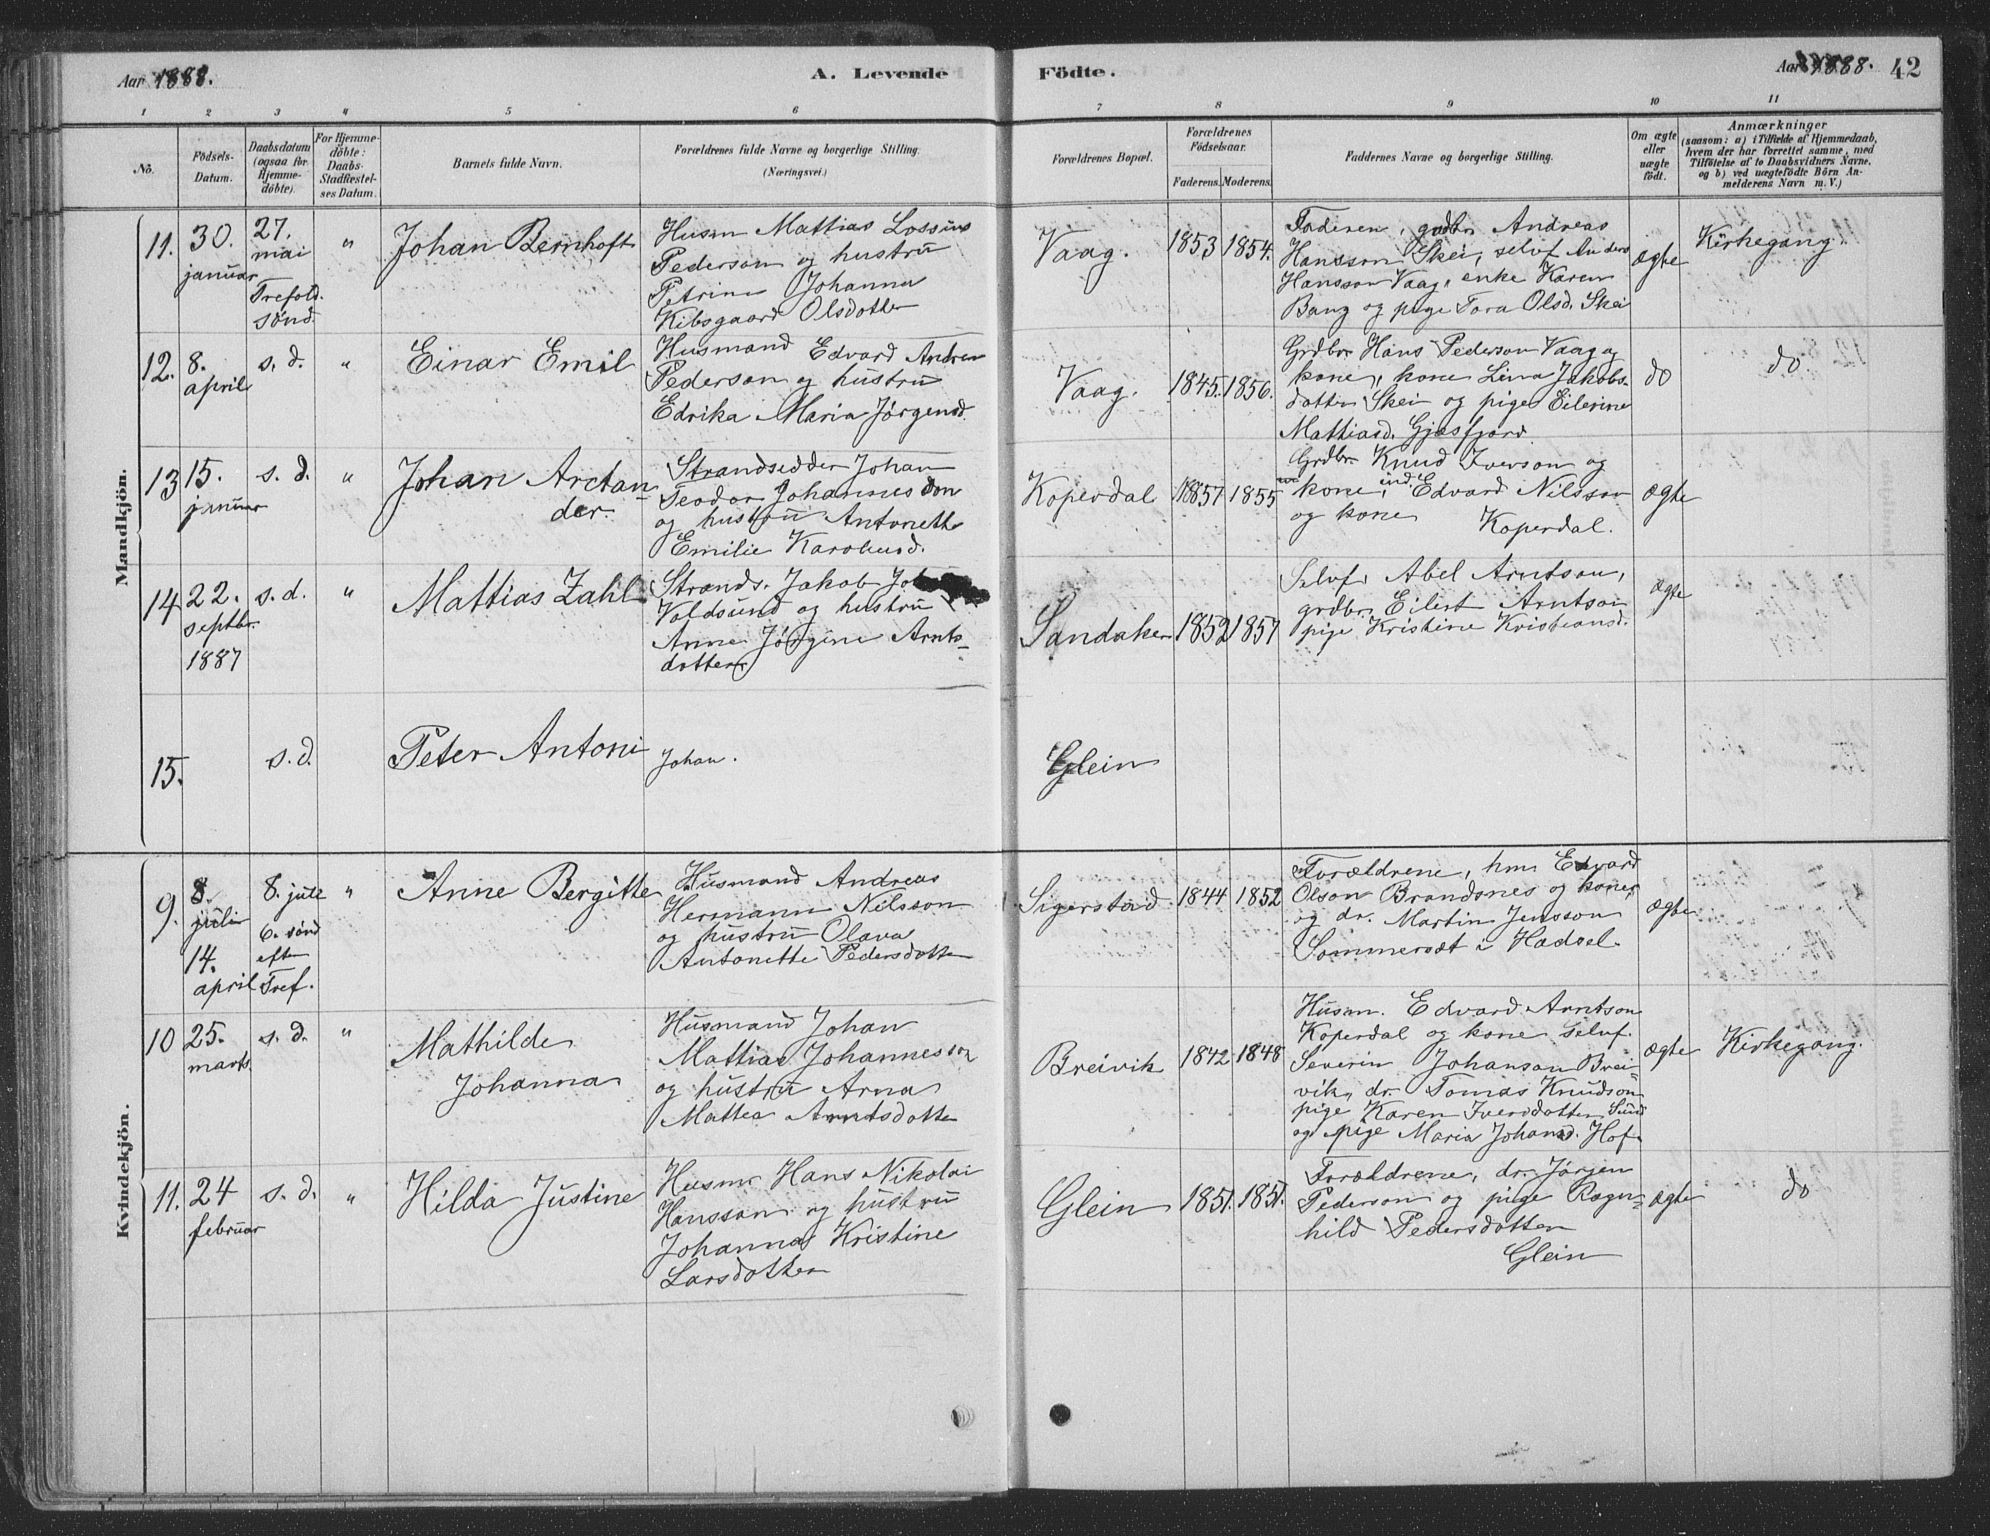 Aar 1888.
A. Levende Födte.
Aar 1888. 42
1 2 3 4 5 6 7 8 9 10 11
No.
Födsels-
Datum.
Daabsdatum
(ogsaa for
Hjemme-
döbte).
For Hjemme-
döbte:
Daabs-
Stadfæstel-
ses Datum.
Barnets fulde Navn.
Forældrenes fulde Navne og borgerlige Stilling.
(Næringsvei.)
Forældrenes Bopæl.
Forældrenes
Födselsaar.
Faderens. Moderens.
Faddernes Navne og borgerlige Stilling.
Om ægte
eller
uægte
födt.
Anmærkninger
(saasom: a) i Tilfælde af Hjemmedaab,
hvem der har forrettet samme, med
Tilföielse af to Daabsvidners Navne,
og b) ved uægtefödte Börn An-
melderens Navn m. V.)
Mandkjön.
11.
30.
januar
27.
mai
Trefold.
sönd.
"
Johan Bernhoft
Husm Mattias Lossius
Pederson og hustru
Petrine Johanna
Kibsgaard Olsdotter
Vaag.
1853
1854.
Faderen, grdbr Andreas
Hansson Skei, selvf Anders
Hansson Vaag, enke Karen
Bang og pige Tora Olsd. Skei
ægte
Kirkegang.
12.
8.
april
s. d.
"
Einar Emil
Husmand Edvard Andrea
Pederson og hustru
Edrika Maria Jørgensd.
Vaag.
1845.
1856.
Grdbr Hans Pederson Vaag og
kone, kone Lina Jakobs-
dotter Skei og pige Eilerine
Mattiasd. Gjæsfjord
do
do
13
15.
januar
s. d.
"
Johan Arctan
der.
Strandsidder Johan
Teodor Johannesson
og hustru Antonette
Emilie Karoliusd.
Koperdal
1857
1855
Grdbr. Knud Iverson og
kone, ind. Edvard Nilsson
og kone Koperdal.
ægte
14
22.
septbr.
1887
s. d.
"
Mattias Zahl
Strands. Jakob
Voldsund og hustru
Anne Jørgine Arnts-
dotter
Sandaker
1852
1857
Selvf. Abel Arntson,
grdbr. Eilert Arntson
pige Kristine Kristiansd.
ægte
15.
s. d.
Peter Antoni
Johan.
Glein
Kvindekjön.
9.
8.
julii
14.
april
8. juli
6. sönd
efter
Tref.
"
Anne Bergitte
Husmand Andreas
Hermann Nilsson
og hustru Olava
Antonette Pedersdotter
Sigerstad
1844
1852
Forældrene, hm Edvard
Olson Brandsnes og kone,
og dr. Martin Jensson
Sommersæt i Hadsel.
ægte
10
25.
marts.
s. d.
"
Mathilde
Johanna
Husmand Johan
Mattias Johannesson
og hustru Arna
Mattea Arntsdotter
Breivik
1842
1848
Husm. Edvard Arntson
Koperdal og kone selvf.
Severin Johanson Brei-
vik, dr. Tomas Knudson
pige Karen Iversdotter Sund
og pige Maria Johansd. Hof.
ægte
Kirkegang.
11.
24
februar
s. d.
"
Hilda Justine
Husm Hans Nikolai
Hansson og hustru
Johanna Kristine
Larsdotter
Glein
1851.
1851.
Forældrene, dr. Jørgen
Pederson og pige Ragn-
hild Pedersdotter
Glein
ægte
do